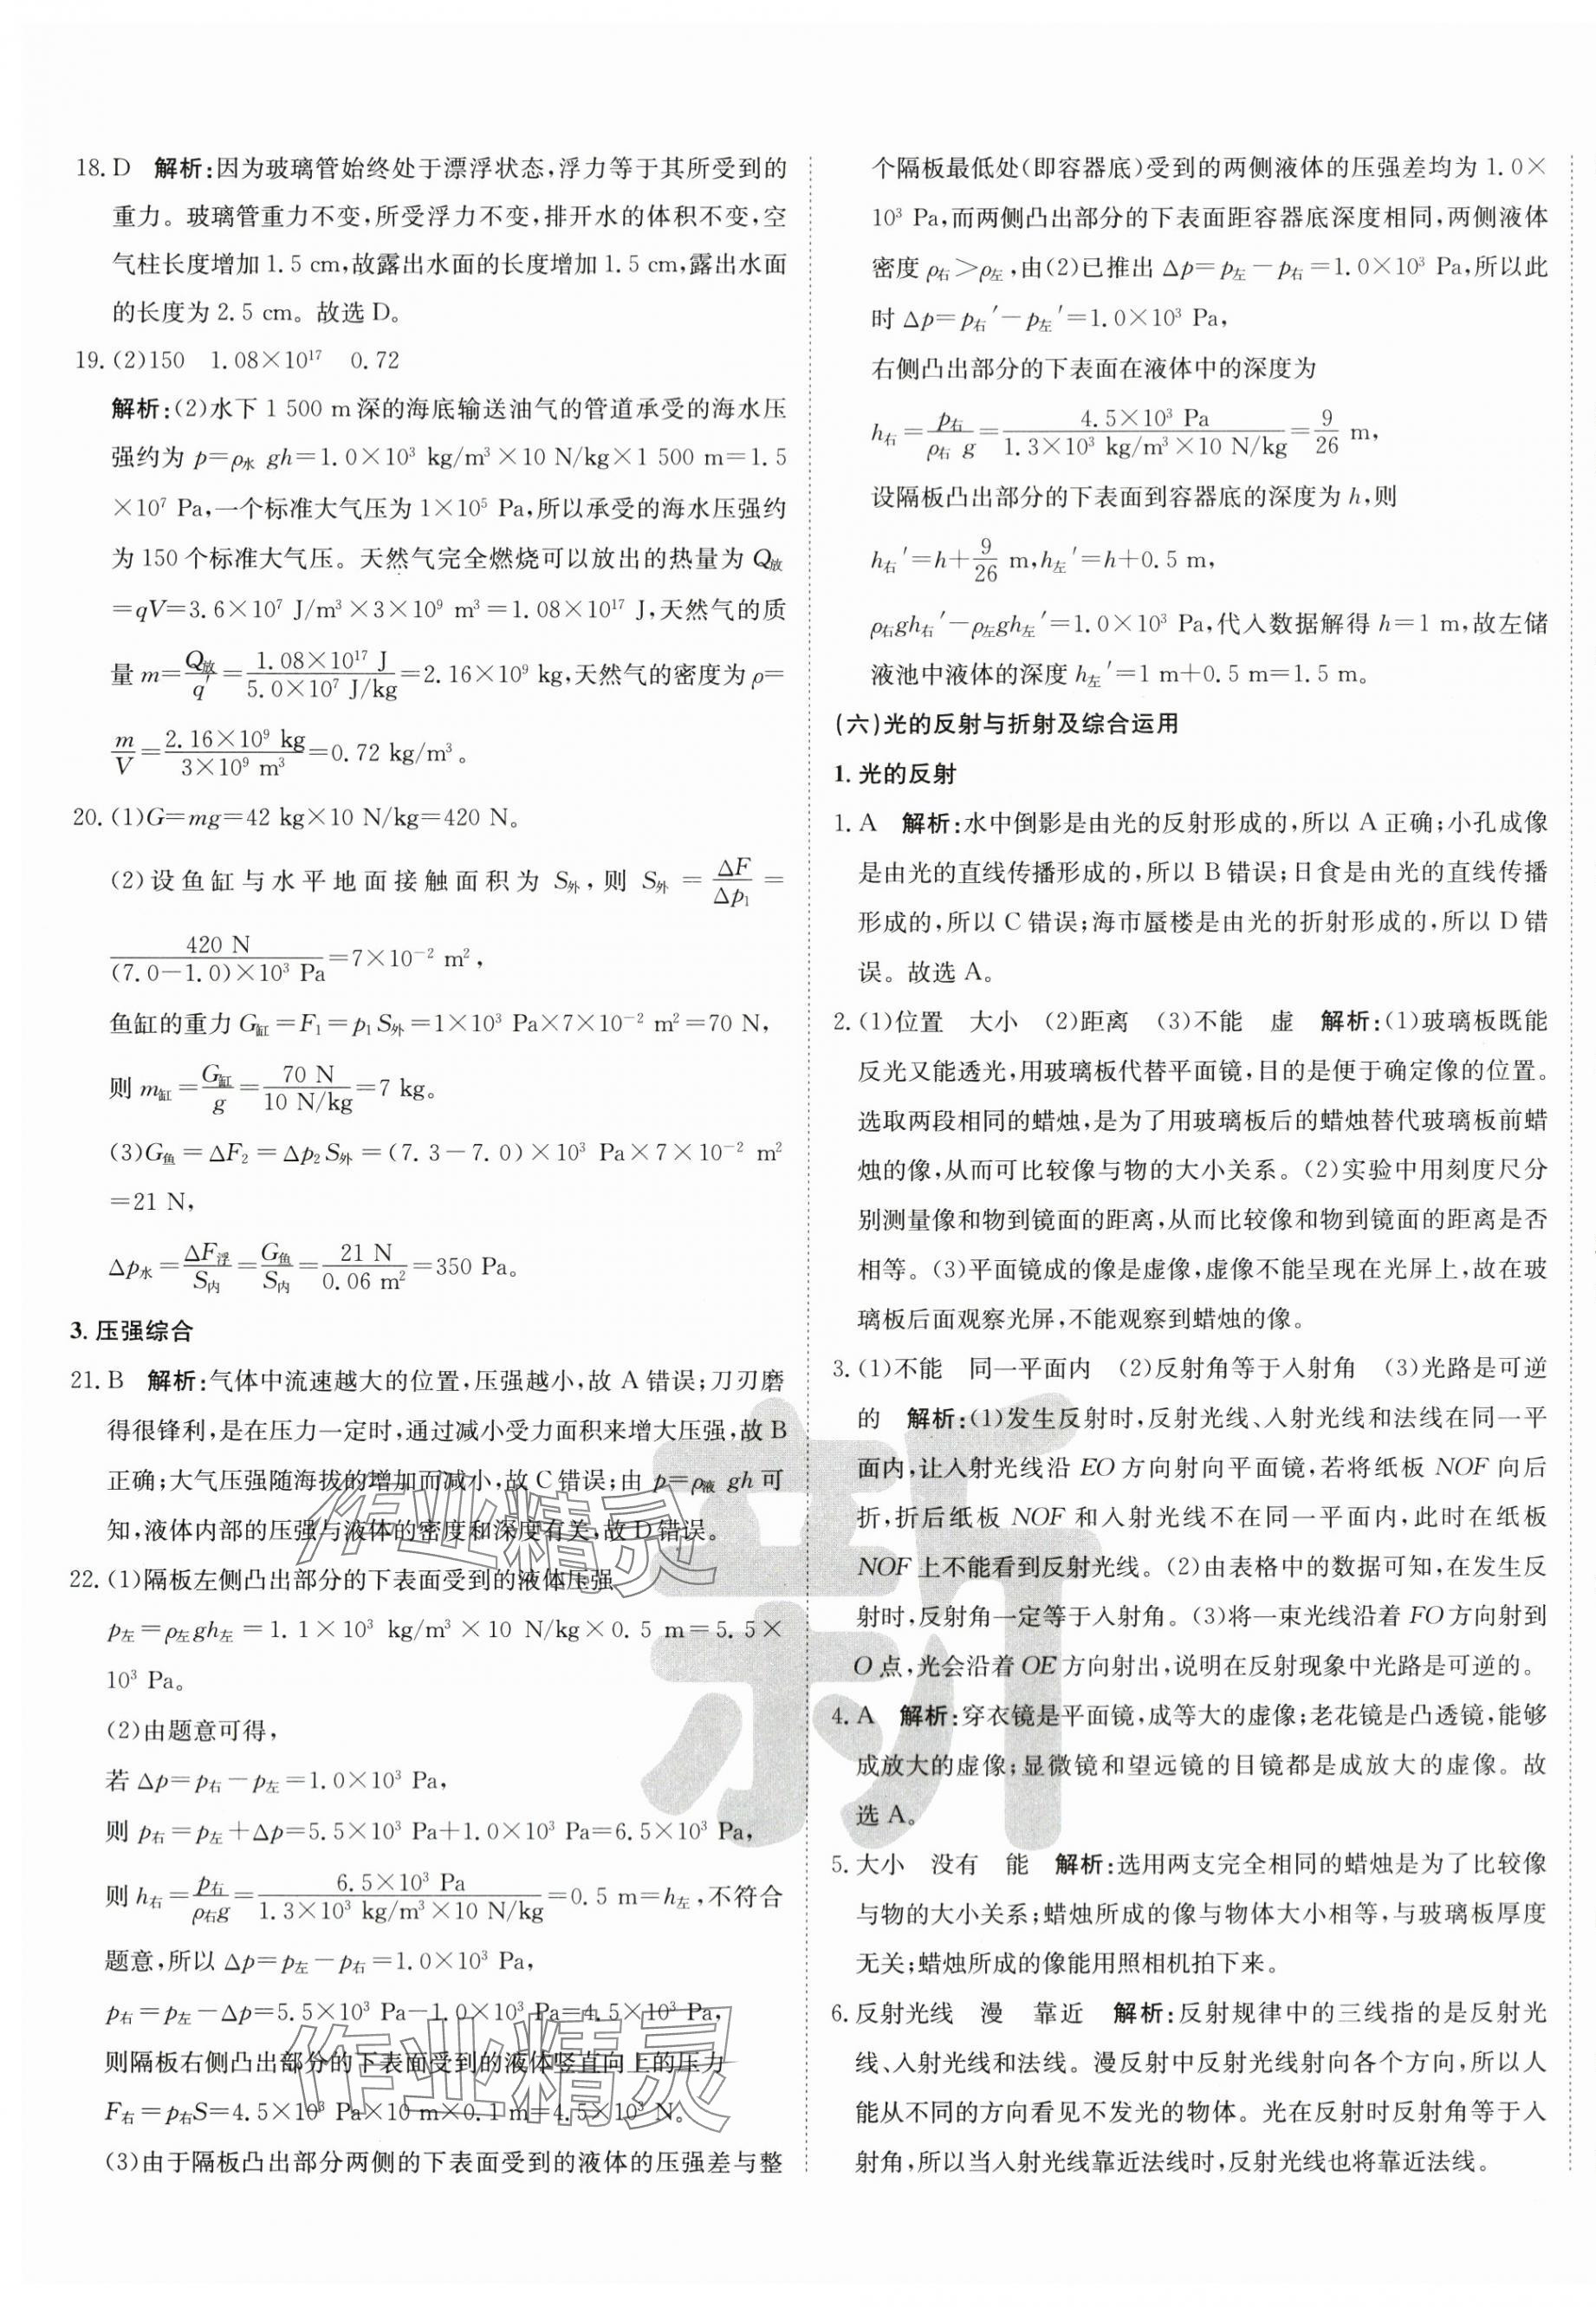 18. D　解析:因为玻璃管始终处于漂浮状态,浮力等于其所受到的
重力。玻璃管重力不变,所受浮力不变,排开水的体积不变,空
气柱长度增加 1.5 cm,故露出水面的长度增加 1.5 cm,露出水面
的长度为 2.5 cm。故选 D。
19. (2)150　1.08×10¹⁷　0.72
解析:(2)水下 1 500 m 深的海底输送油气的管道承受的海水压
强约为 p=ρ水 gh=1.0×10³ kg/m³×10 N/kg×1 500 m=1.5
×10⁷ Pa,一个标准大气压为 1×10⁵ Pa,所以承受的海水压强约
为 150 个标准大气压。天然气完全燃烧可以放出的热量为 Q放
=qV=3.6×10⁷ J/m³×3×10⁹ m³=1.08×10¹⁷ J,天然气的质
量 m=Q放/q′=1.08×10¹⁷ J/5.0×10⁷ J/kg=2.16×10⁹ kg,天然气的密度为 ρ=
m/V=2.16×10⁹ kg/3×10⁹ m³=0.72 kg/m³。
20. (1)G=mg=42 kg×10 N/kg=420 N。
(2)设鱼缸与水平地面接触面积为 S外,则 S外=ΔF/Δp₁=
420 N/(7.0−1.0)×10³ Pa=7×10⁻² m²,
鱼缸的重力 G缸=F₁=p₁S外=1×10³ Pa×7×10⁻² m²=70 N,
则 m缸=G缸/g=70 N/10 N/kg=7 kg。
(3)G鱼=ΔF₂=Δp₂S外=(7.3−7.0)×10³ Pa×7×10⁻² m²
=21 N,
Δp水=ΔF浮/S内=G鱼/S内=21 N/0.06 m²=350 Pa。
3. 压强综合
21. B　解析:气体中流速越大的位置,压强越小,故 A 错误;刀刃磨
得很锋利,是在压力一定时,通过减小受力面积来增大压强,故 B
正确;大气压强随海拔的增加而减小,故 C 错误;由 p=ρ液 gh 可
知,液体内部的压强与液体的密度和深度有关,故 D 错误。
22. (1)隔板左侧凸出部分的下表面受到的液体压强
p左=ρ左gh左=1.1×10³ kg/m³×10 N/kg×0.5 m=5.5×
10³ Pa。
(2)由题意可得,
若 Δp=p右−p左=1.0×10³ Pa,
则 p右=p左+Δp=5.5×10³ Pa+1.0×10³ Pa=6.5×10³ Pa,
则 h右=p右/ρ右g=6.5×10³ Pa/1.3×10³ kg/m³×10 N/kg=0.5 m=h左,不符合
题意,所以 Δp=p左−p右=1.0×10³ Pa,
p右=p左−Δp=5.5×10³ Pa−1.0×10³ Pa=4.5×10³ Pa,
则隔板右侧凸出部分的下表面受到的液体竖直向上的压力
F右=p右S=4.5×10³ Pa×10 m×0.1 m=4.5×10³ N。
(3)由于隔板凸出部分两侧的下表面受到的液体的压强差与整
个隔板最低处(即容器底)受到的两侧液体的压强差均为 1.0×
10³ Pa,而两侧凸出部分的下表面距容器底深度相同,两侧液体
密度 ρ右>ρ左,由(2)已推出 Δp=p左−p右=1.0×10³ Pa,所以此
时 Δp=p右′−p左′=1.0×10³ Pa,
右侧凸出部分的下表面在液体中的深度为
h右=p右/ρ右 g=4.5×10³ Pa/1.3×10³ kg/m³×10 N/kg=9/26 m,
设隔板凸出部分的下表面到容器底的深度为 h,则
h右′=h+9/26 m,h左′=h+0.5 m,
ρ右gh右′−ρ左gh左′=1.0×10³ Pa,代入数据解得 h=1 m,故左储
液池中液体的深度 h左′=1 m+0.5 m=1.5 m。
(六)光的反射与折射及综合运用
1. 光的反射
1. A　解析:水中倒影是由光的反射形成的,所以 A 正确;小孔成像
是由光的直线传播形成的,所以 B 错误;日食是由光的直线传播
形成的,所以 C 错误;海市蜃楼是由光的折射形成的,所以 D 错
误。故选 A。
2. (1)位置　大小　(2)距离　(3)不能　虚　解析:(1)玻璃板既能
反光又能透光,用玻璃板代替平面镜,目的是便于确定像的位置。
选取两段相同的蜡烛,是为了用玻璃板后的蜡烛替代玻璃板前蜡
烛的像,从而可比较像与物的大小关系。(2)实验中用刻度尺分
别测量像和物到镜面的距离,从而比较像和物到镜面的距离是否
相等。(3)平面镜成的像是虚像,虚像不能呈现在光屏上,故在玻
璃板后面观察光屏,不能观察到蜡烛的像。
3. (1)不能　同一平面内　(2)反射角等于入射角　(3)光路是可逆
的　解析:(1)发生反射时,反射光线、入射光线和法线在同一平
面内,让入射光线沿 EO 方向射向平面镜,若将纸板 NOF 向后
折,折后纸板 NOF 和入射光线不在同一平面内,此时在纸板
NOF 上不能看到反射光线。(2)由表格中的数据可知,在发生反
射时,反射角一定等于入射角。(3)将一束光线沿着 FO 方向射到
O 点,光会沿着 OE 方向射出,说明在反射现象中光路是可逆的。
4. A　解析:穿衣镜是平面镜,成等大的虚像;老花镜是凸透镜,能够
成放大的虚像;显微镜和望远镜的目镜都是成放大的虚像。故
选 A。
5. 大小　没有　能　解析:选用两支完全相同的蜡烛是为了比较像
与物的大小关系;蜡烛所成的像与物体大小相等,与玻璃板厚度
无关;蜡烛所成的像能用照相机拍下来。
6. 反射光线　漫　靠近　解析:反射规律中的三线指的是反射光
线、入射光线和法线。漫反射中反射光线射向各个方向,所以人
能从不同的方向看见不发光的物体。光在反射时反射角等于入
射角,所以当入射光线靠近法线时,反射光线也将靠近法线。
新
作业精灵
作业精灵